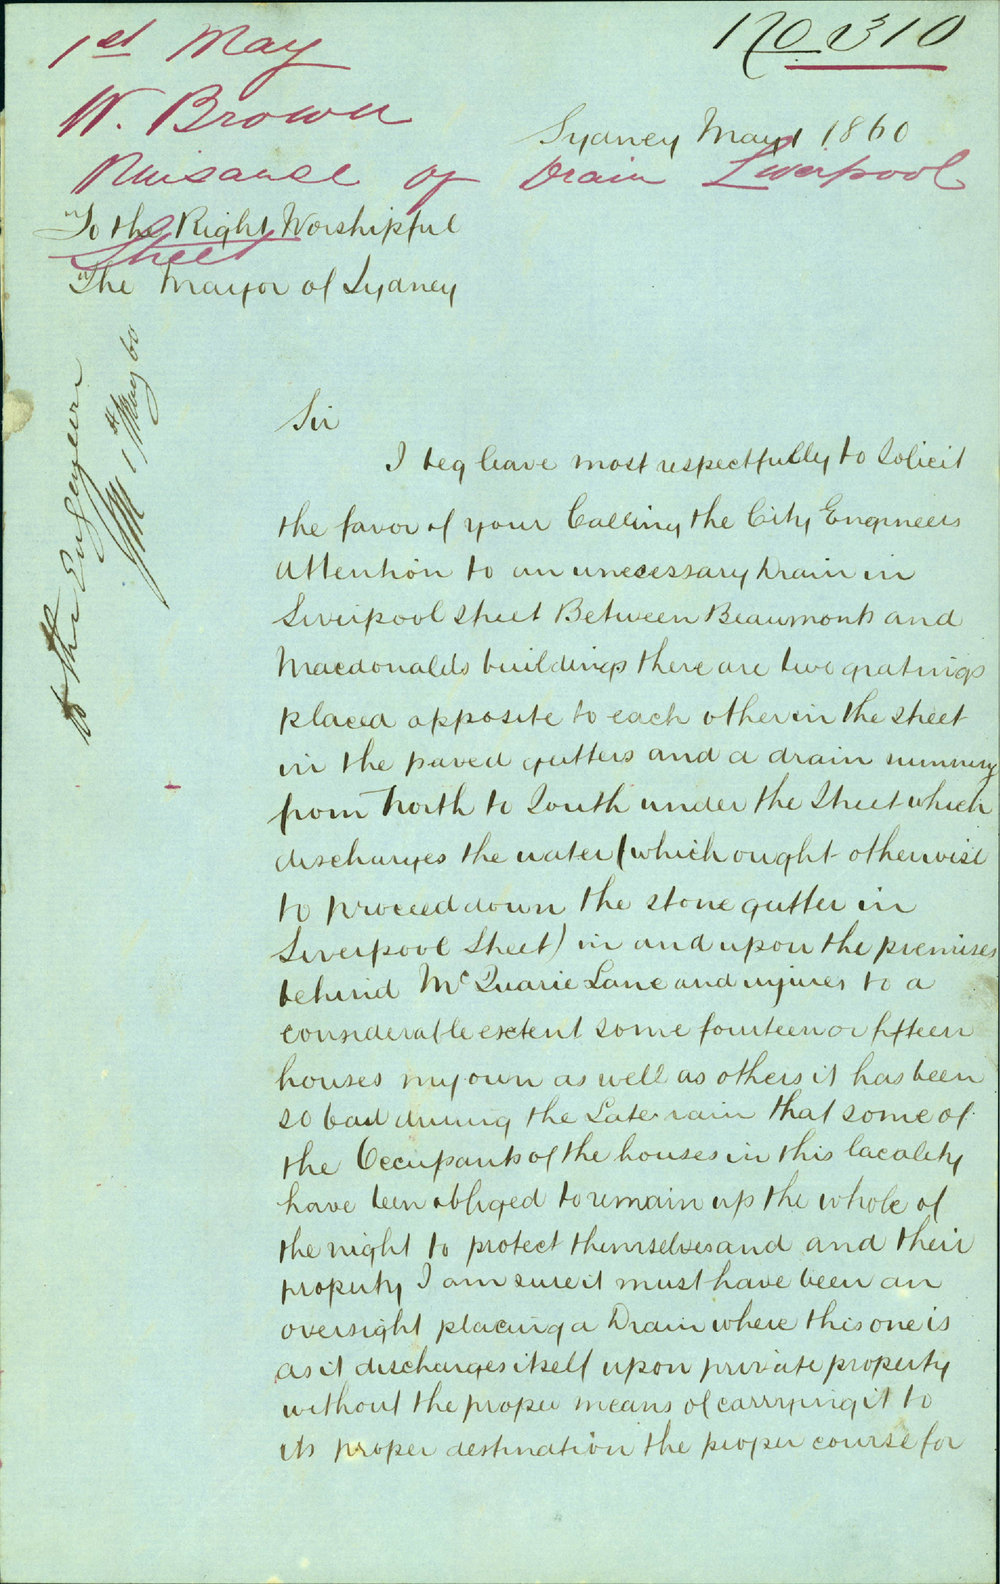 No 310
1st May
W. Brown
Nuisance of Drain Liverpool
Street
Sydney May 1 1860
To the Right Worshipful
The Mayor of Sydney
to the Engineer
1st May 60
Sir
I beg leave most respectfully to Solicit
the favor of your Calling the City Engineers
attention to an unecessary Drain in
Liverpool Street Between Beaumonts and
Macdonalds buildings there are two gratings
placed opposite to each other in the street
in the paved gutters and a drain running
from North to South under the Street which
discharges the water (which ought otherwise
to proceed down the stone gutter in
Liverpool Street) in and upon the premises
behind McQuarie Lane and injures to a
considerable extent some fourteen or fifteen
houses my own as well as others it has been
so bad during the Late rain that some of
the Occupants of the houses in this locality
have been obliged to remain up the whole of
the night to protect themselves and and their
property I am sure it must have been an
oversight placing a Drain where this one is
as it discharges itself upon private property
without the proper means of carrying it to
its proper destination the proper course for